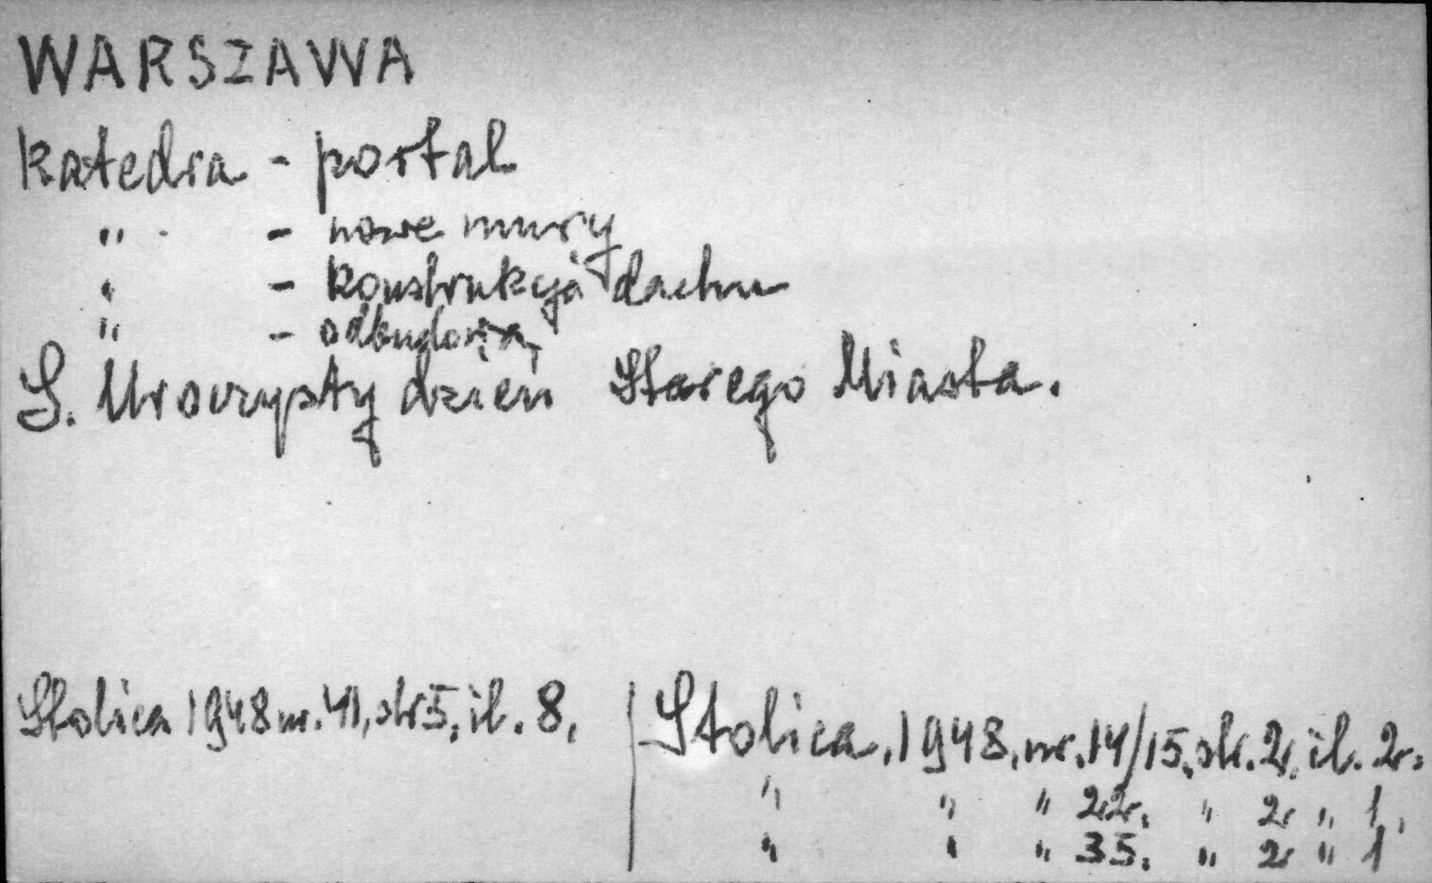 WARSZAWA
Katedra - portal
" - nowe mury
" - konstrukcja dachu
" - odbudowa,
S. Uroczysty dzień Starego Miasta.
Stolica 1948 nr. 41, str 5, il. 8,
Stolica, 1948, nr. 14/15, str. 2, il. 2.
" " " 22. " 2 " 1,
" " " 35. " 2 " 1